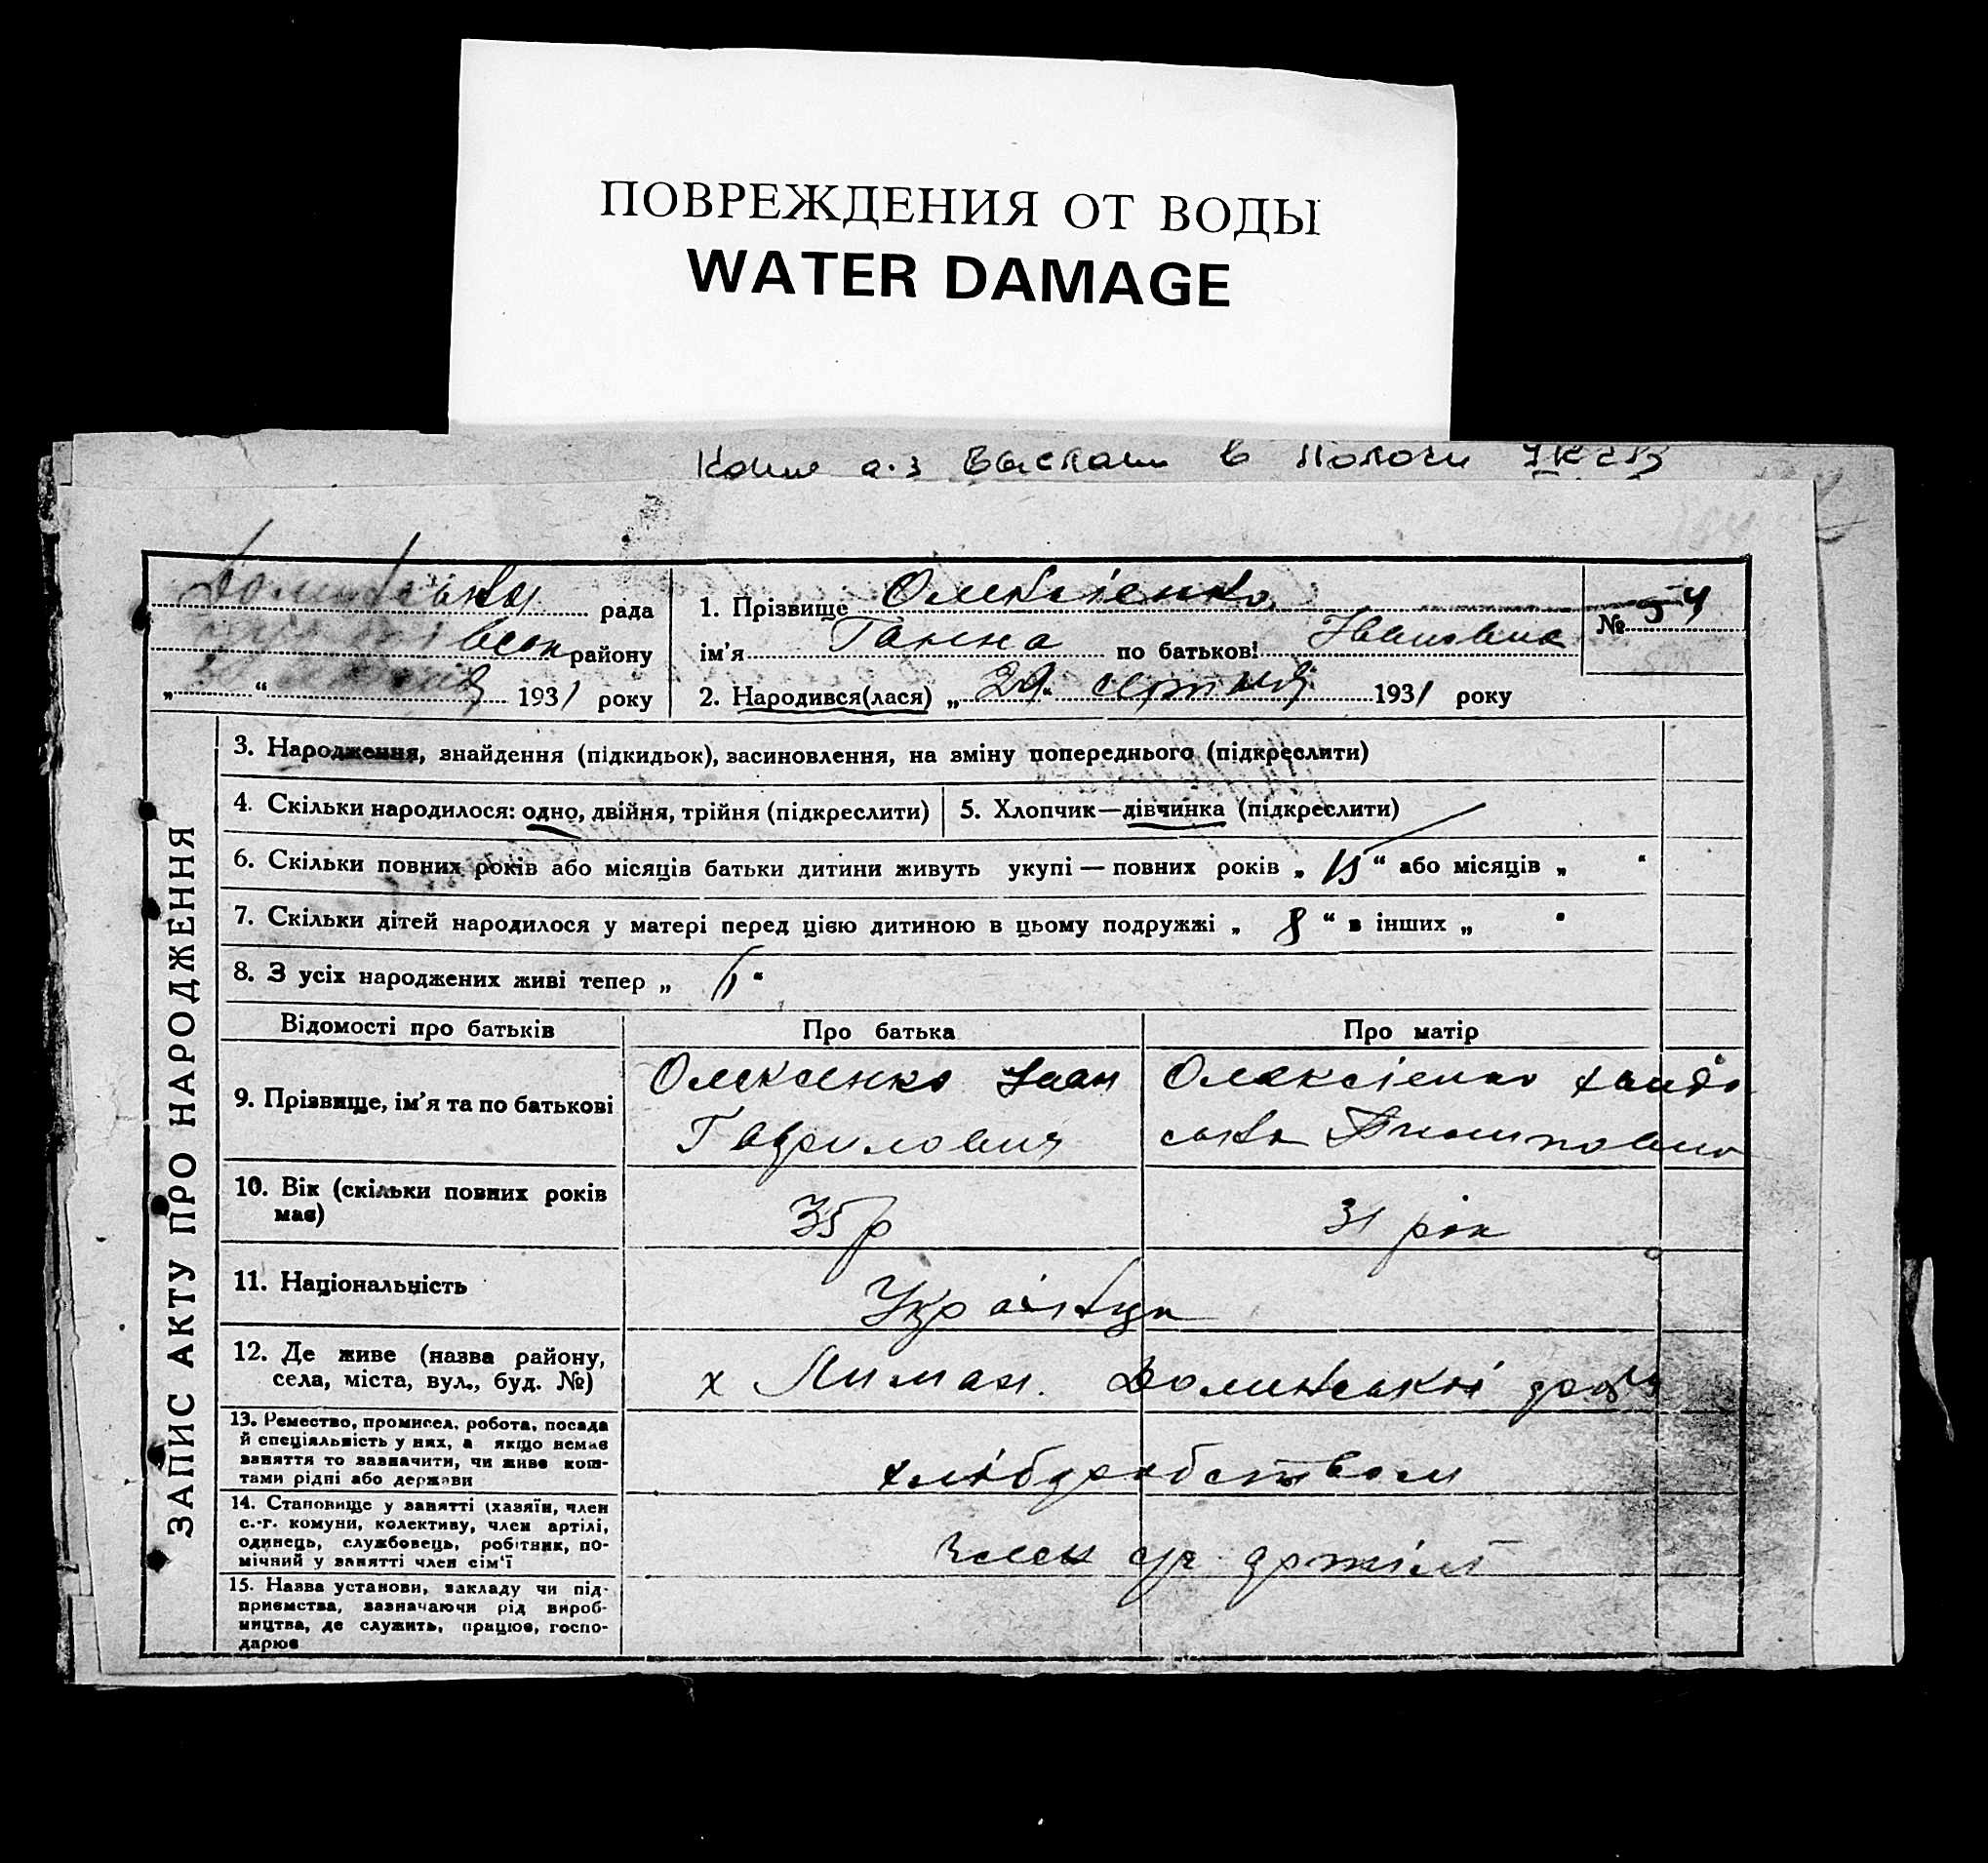 ПОВРЕЖДЕНИЯ ОТ ВОДЫ
WATER DAMAGE
а.з выслать в Пологи
рада
району
„ “ 1931 року
1. Прізвище Олексієнко
ім'я Ганна по батькові Івановна
№ 54
2. Народився(лася) „29“ серпня 1931 року
ЗАПИС АКТУ ПРО НАРОДЖЕННЯ
3. Народження, знайдення (підкидьок), засиновлення, на зміну попереднього (підкреслити)
4. Скільки народилося: одно, двійня, трійня (підкреслити)
5. Хлопчик—дівчинка (підкреслити)
6. Скільки повних років або місяців батьки дитини живуть укупі — повних років „ “ або місяців „ “
7. Скільки дітей народилося у матері перед цією дитиною в цьому подружжі „ 8 “ в інших „ “
8. З усіх народжених живі тепер „ “
Відомості про батьків
Про батька
Про матір
9. Прізвище, ім'я та по батькові
Олексієнко Іван
Гаврилович
Олексієнко
10. Вік (скільки повних років
має)
35 р
31 рік
11. Національність
Українці
12. Де живе (назва району,
села, міста, вул., буд. №)
х Лиман. Долинської ради
13. Ремество, промисел, робота, посада
й спеціяльність у них, а якщо немає
заняття то зазначити, чи живе кош-
тами рідні або держави
хліборобством
14. Становище у занятті (хазяїн, член
с.-г. комуни, колективу, член артілі,
одинець, службовець, робітник, по-
мічний у занятті член сім'ї
член с/г артілі
15. Назва установи, закладу чи під-
приємства, зазначаючи рід вироб-
ництва, де служить, працює, госпо-
дарює